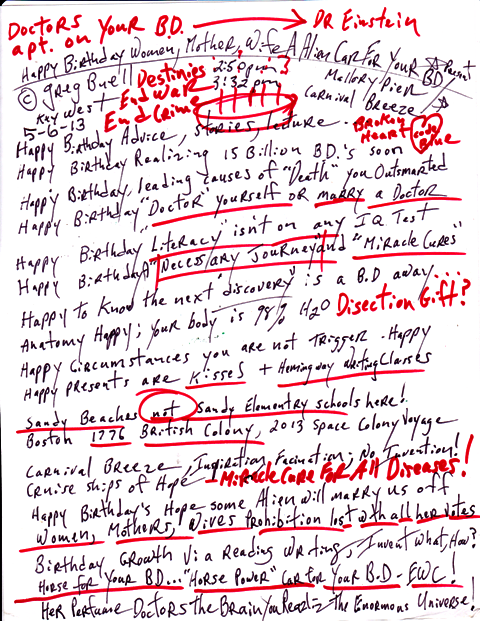 Doctors apt. on Your B.D. → DR Einstein
Happy Birthday Women, Mother, Wife A Alien Car For Your BD Present
© Greg Buell Destinies 2:50pm 3 Mallory Pier
Key West End War 3:32 pm Carnival Breeze
5-6-13 End Crime
Happy Birthday Advice, stories, lecture. Broken Heart Code Blue
Happy Birthday Realizing 15 Billion BD.'s soon
Happy Birthday, leading causes of "Death" you Outsmarted
Happy Birthday "Doctor" yourself or marry a Doctor
Happy Birthday Literacy isn't on any IQ Test
Happy Birthday A "Necessary Journey" and "Miracle Cures"
Happy to Know the next "discovery" is a B.D away...
Anatomy Happy; Your body is 98% H2O Disection Gift?
Happy Circumstances you are not Trigger Happy
Happy presents are Kisses + Hemingway Writing Classes
Sandy Beaches not Sandy Elementry schools here!
Boston 1776 British Colony, 2013 Space Colony Voyage
Carnival Breeze, Inspiration, Facination; No, Invention!
Cruise ships of Hope - Miracle Cure For All Diseases!
Happy Birthday's Hope some Alien will marry us off
Women, Mothers, Wives Prohibition lost with all her votes
Birthday Growth Via Reading Writing, Invent What, How?
Horse for Your BD... "Horse Power" Car for Your B.D - EWC!
Her Perfume Doctors the Brain You Realize The Enormous Universe!